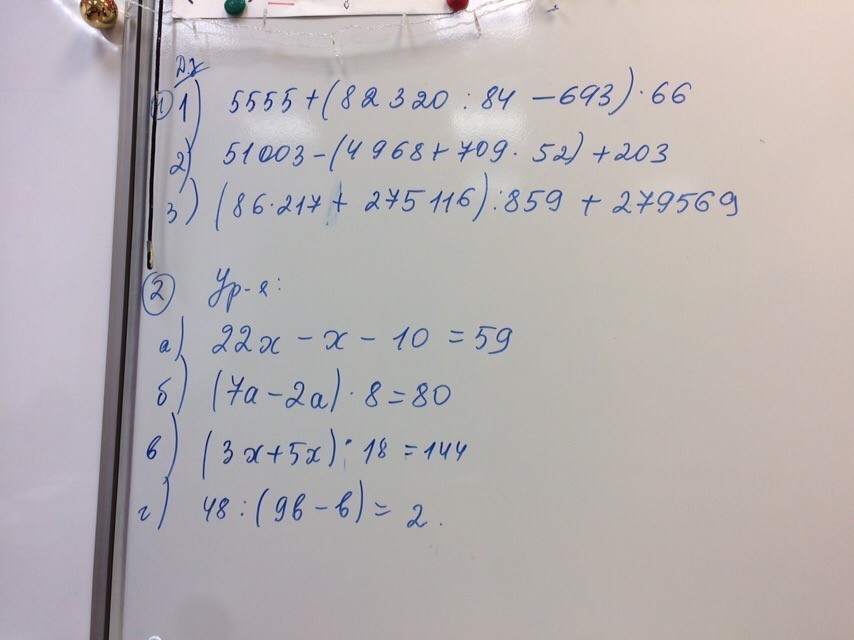 Дз
① 1) 5555+(82320:84-693)·66
2) 51003-(4968+709·52)+203
3) (86·217+275116):859+279569
② Ур-я:
а) 22x-x-10=59
б) (7a-2a)·8=80
в) (3x+5x)·18=144
г) 48:(9в-в)=2.